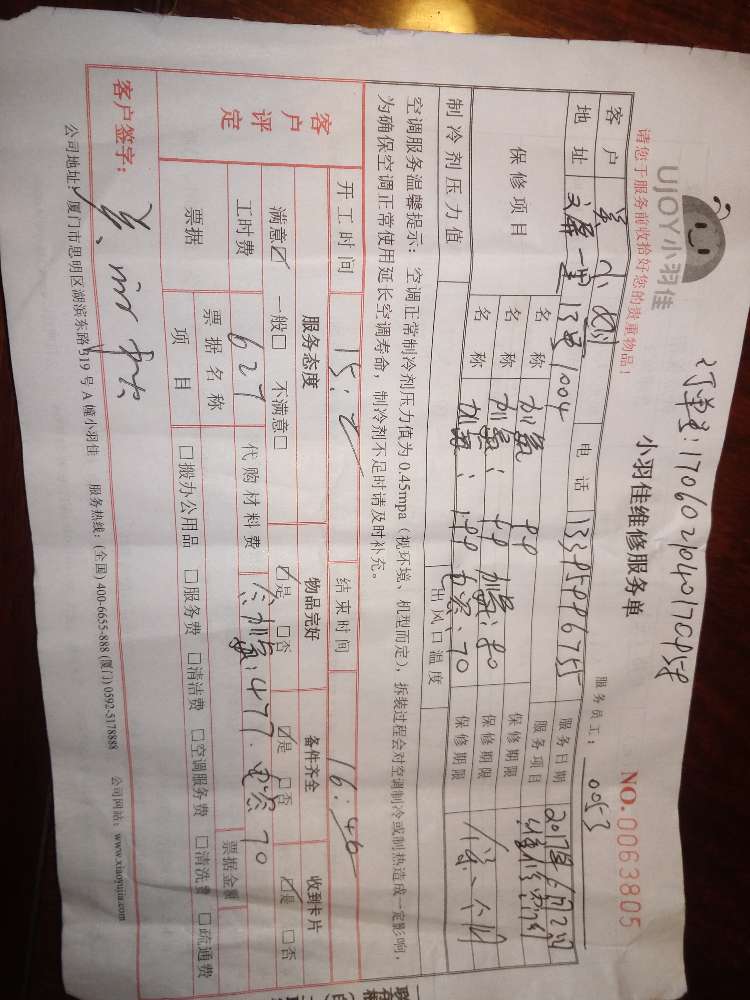 订单号:170602104017CP58
UJOY小羽佳
小羽佳维修服务单
NO.0063805
请您于服务前收拾好您的贵重物品!
服务员工: 0053
客户 小姐 电话 13395996755 服务日期 2017年6月2日
地址 一里13号1004 服务项目
保修项目 名称 加氨 保修期限
名称 加氨: 加氨:80 保修期限 保 一个月
名称 加氨: 电容:70 保修期限
制冷剂压力值 出风口温度
空调服务温馨提示: 空调正常制冷剂压力值为 0.45mpa(视环境、机型而定), 拆装过程会对空调制冷或制热造成一定影响,
为确保空调正常使用延长空调寿命, 制冷剂不足时请及时补充。
客户评定
开工时间 15: 结束时间 16:46
服务态度 物品完好 备件齐全 收到卡片
满意☑ 一般□ 不满意□ ☑是 □否 ☑是 □否 ☑是 □否
工时费 627 代购材料费 :477. 电容70
票据 票据名称 票据金额
项目 □搬办公用品 □服务费 □清洁费 □空调服务费 □清洗费 □疏通费
客户签字:
公司地址: 厦门市思明区湖滨东路319号A幢小羽佳 服务热线: (全国) 400-6655-888 (厦门) 0592-5178888 公司网站: www.xiaoyujia.com